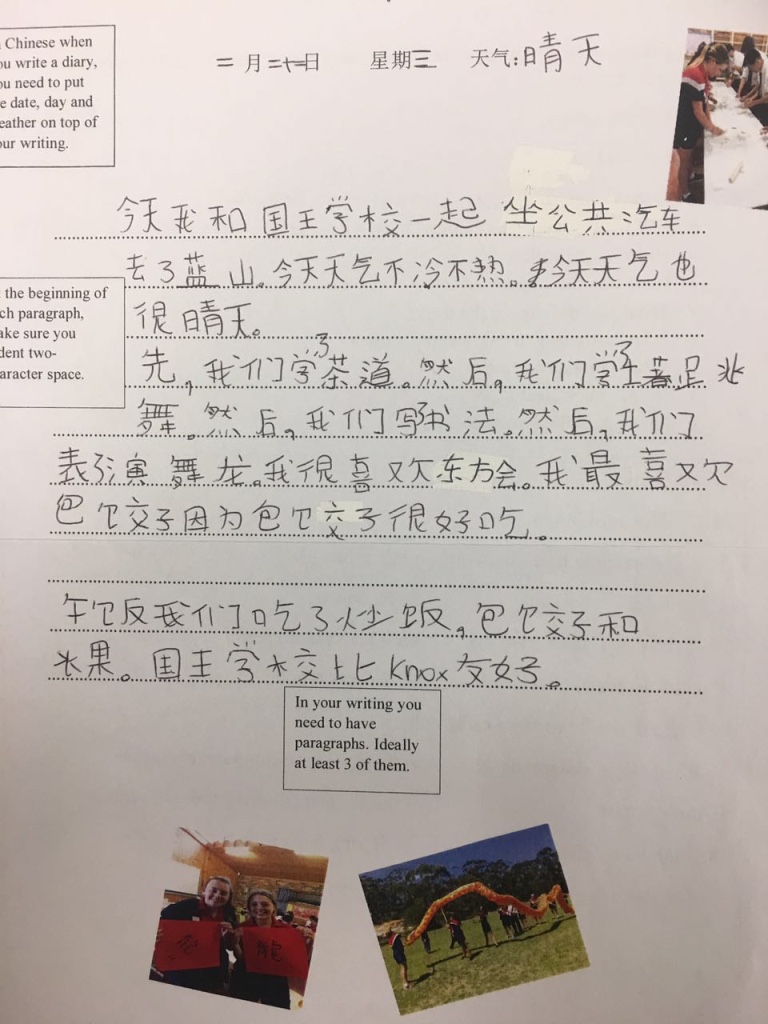 Chinese when
ou write a diary,
ou need to put
e date, day and
eather on top of
our writing.
二月二十日 星期三 天气:晴天
今天我和国王学校一起坐公共汽车
去了蓝山。今天天气不冷不热。今天天气也
很晴天。
the beginning of
ch paragraph,
ake sure you
dent two-
aracter space.
先,我们学了茶道。然后,我们学了跳
舞。然后,我们写书法。然后,我们
表演舞龙。我很喜欢东方会。我最喜欢
包饺子因为包饺子很好吃。
午饭我们吃了炒饭,包饺子和
水果。国王学校比Knox友好。
In your writing you
need to have
paragraphs. Ideally
at least 3 of them.
龍